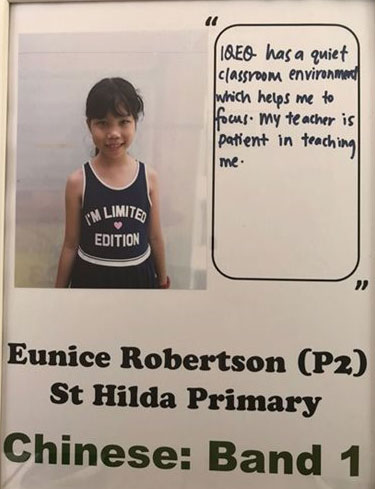 “
IQEQ has a quiet
classroom environment
which helps me to
focus. My teacher is
patient in teaching
me.
”
I'M LIMITED
EDITION
Eunice Robertson (P2)
St Hilda Primary
Chinese: Band 1